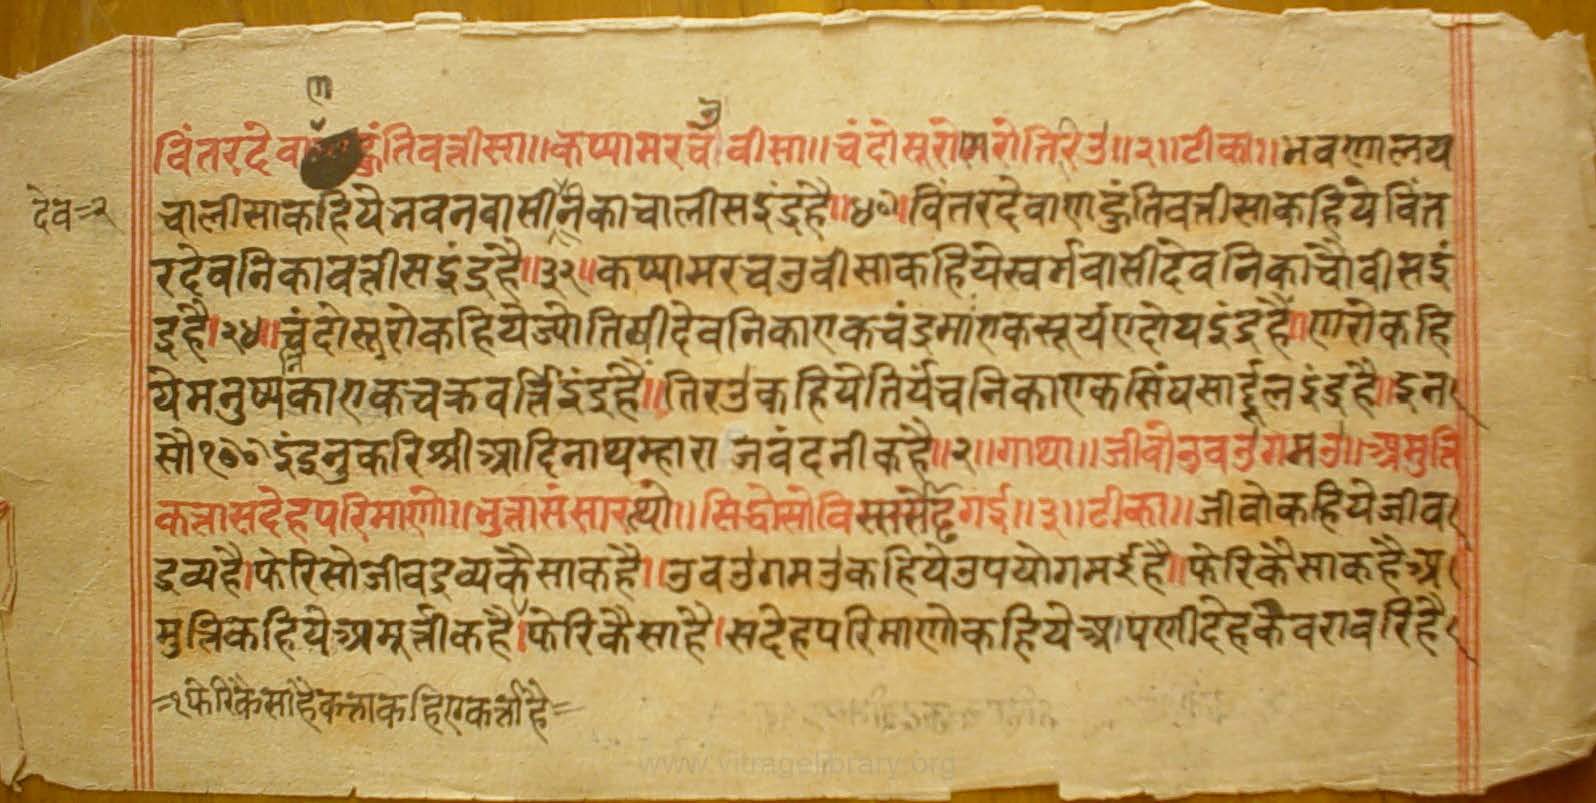 ण
उ
विंतरदेवा हुंतिवत्तीसा॥कप्पामरच वीसा॥चंदोसूरोणरोतिरिउ॥२॥टीका॥भवणालय
देव=२
चालीसाकहियेभवनवासीनिकाचालीसइंद्रहै॥४०॥विंतरदेवाणहुंतिवत्तीसाकहियेविंत
रदेवनिकावत्तीसइंद्रहै॥३२॥कप्पामरचउवीसाकहियेस्वर्गवासीदेवनिकाचौवीसइं
द्रहै।२४॥चंदोसूरोकहियेज्योतिषीदेवनिकाएकचंद्रमांएकसूर्यएदोयइंद्रहै॥णरोकहि
येमनुष्यनिकाएकचक्रवर्त्तिइंद्रहै॥तिरउकहियेतिर्यंचनिकाएकसिंघसार्दूलइंद्रहै॥इन
सौ१००इंद्रनुकरिश्रीआदिनाथम्हारा जवंदनीकहै॥२॥गाथा॥जीवोउवउगमउ॥अमुत्ति
कत्तासदेहपरिमाणो॥भुत्तासंसारत्थो॥सिद्धोसोविस्ससोढ्ढगई॥३॥टीका॥जीवोकहियेजीव
द्रव्यहै।फेरिसोजीवद्रव्यकैसाकहै॥उवउगमउकहियेउपयोगमईहै॥फेरिकैसाकहैअ
मुत्तिकहियेअमूर्त्तीकहै।फेरिकैसाहै।सदेहपरिमाणोकहियेआपणीदेहकैवरावरिहै
=१फेरिकैसाहैकत्ताकहिएकर्त्ताहै=
www.vitragelibrary.org